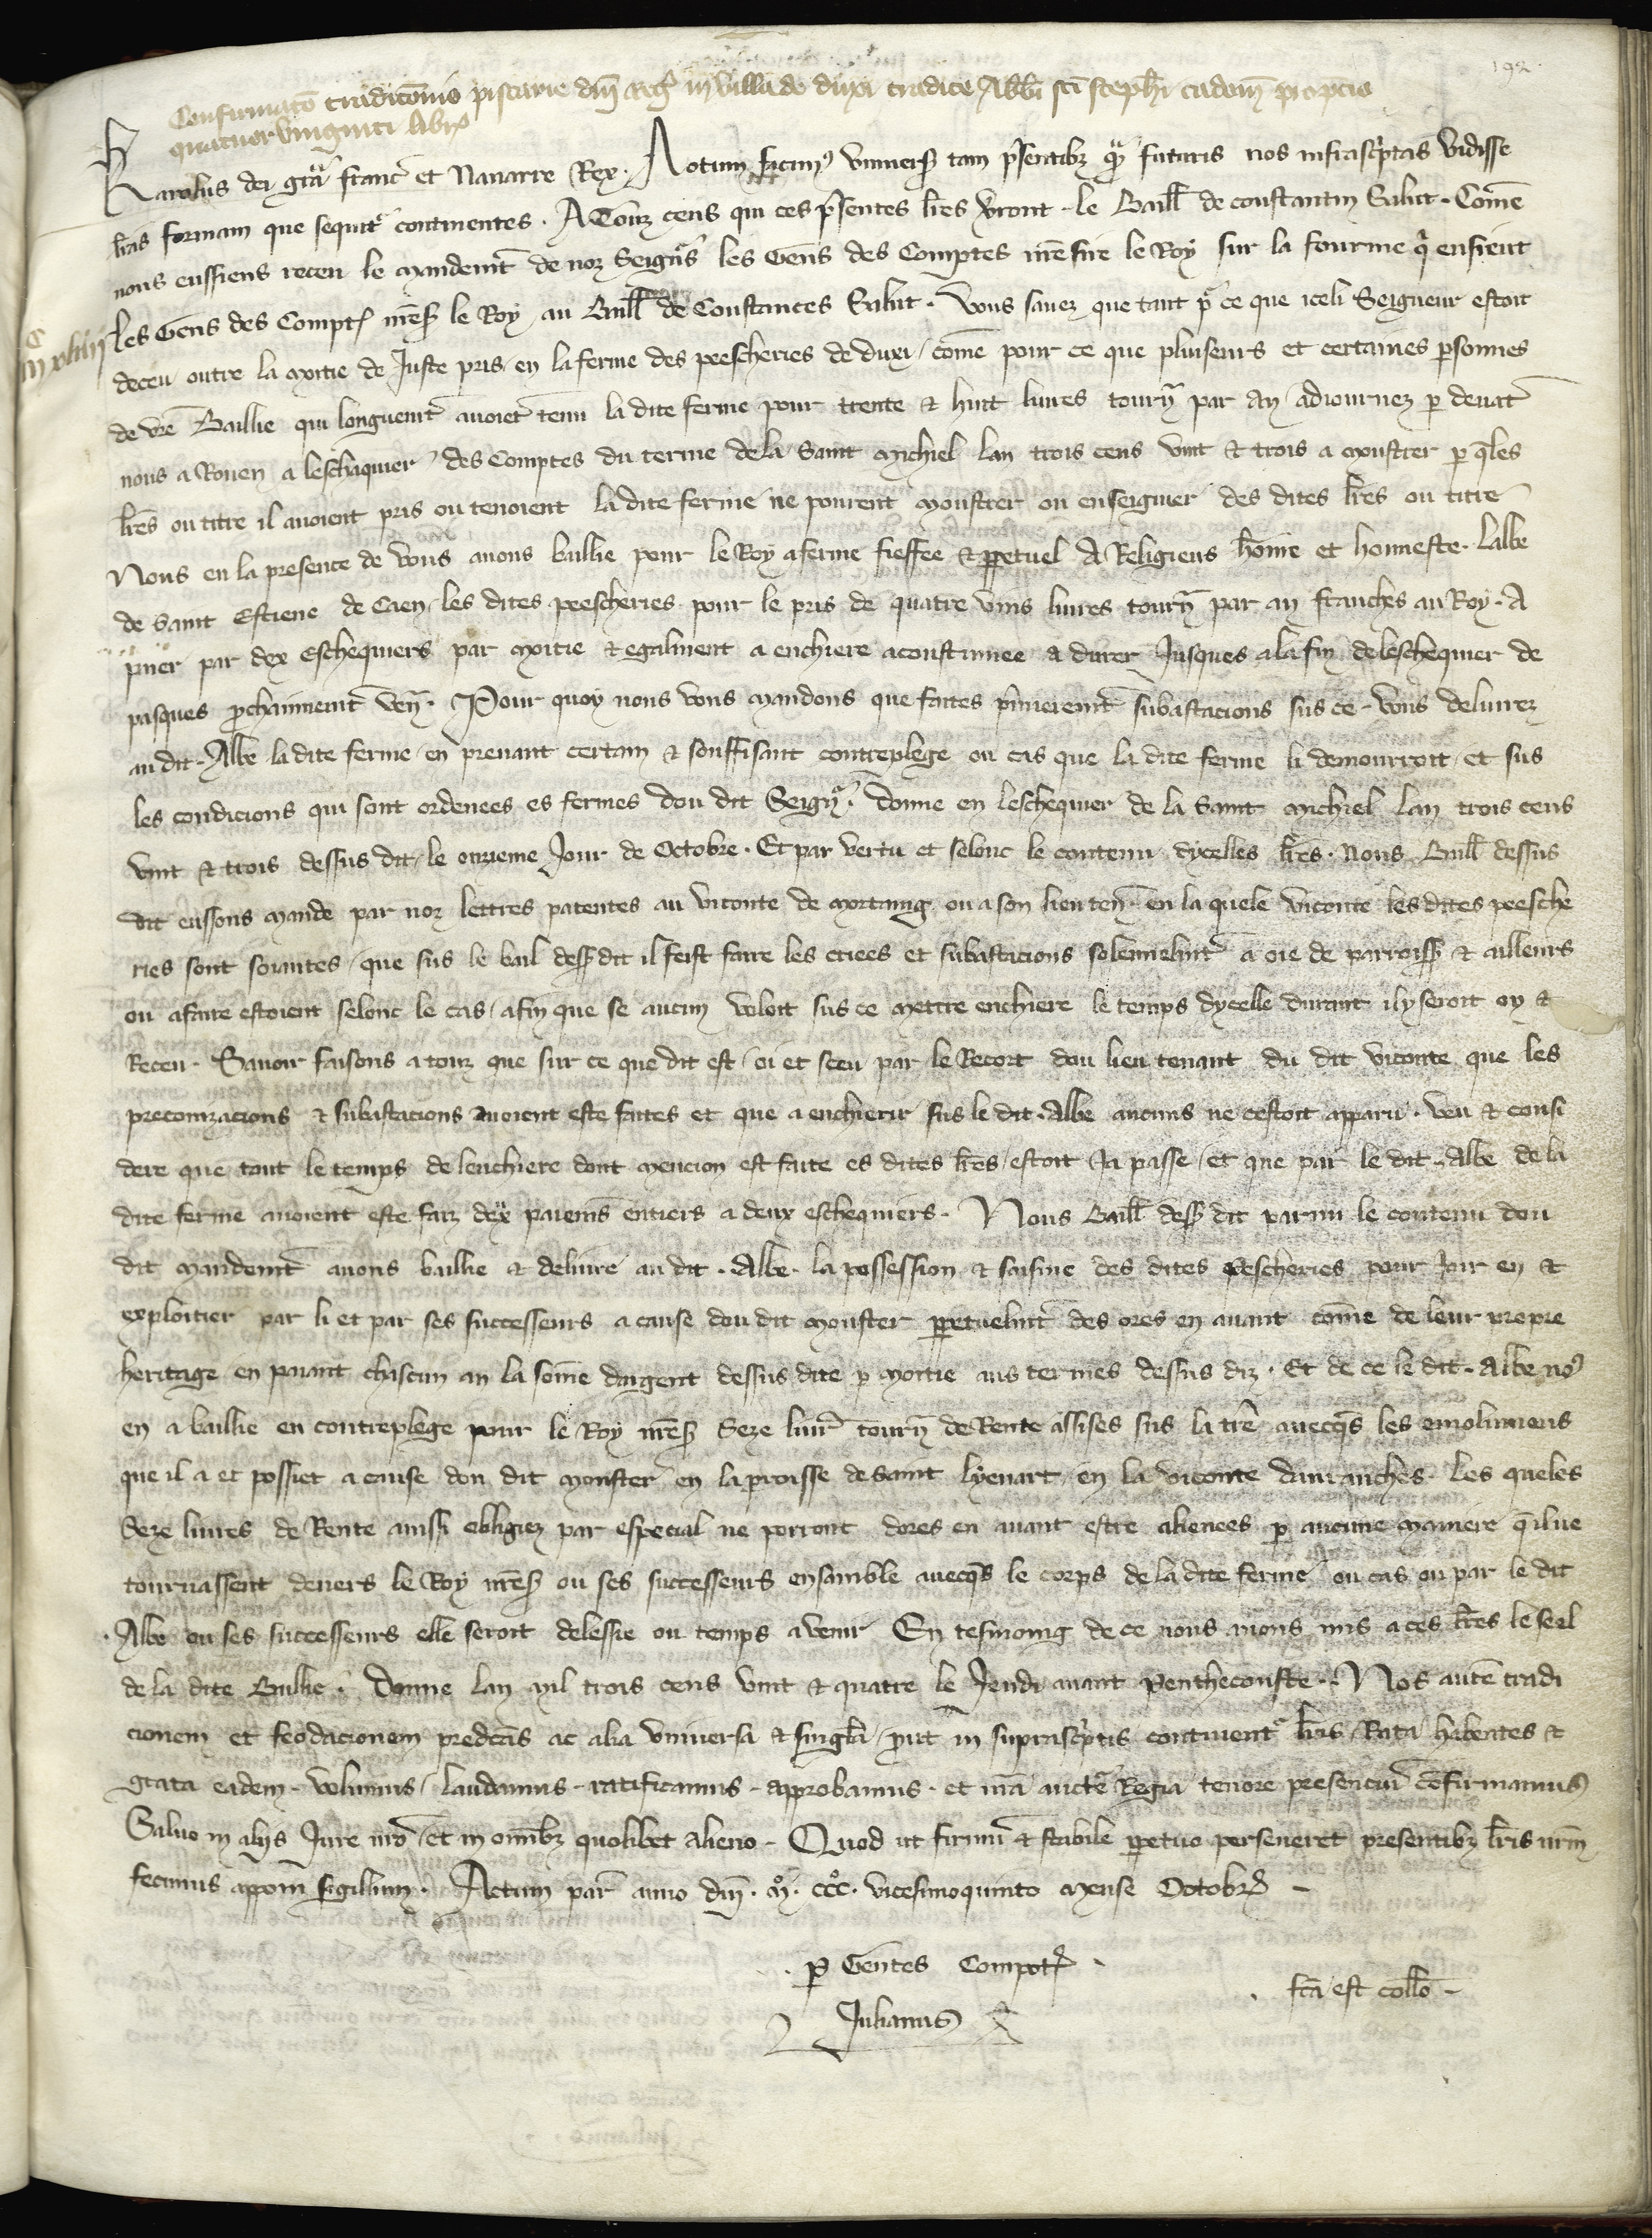 192
Confirmato tradicōnis piscarie dni Reg in villa de duxi tradite Abbi sci stephi cadom̄ p̄ precio
quatuorvinginti libr
Karolus dei gr̄a franc̄ et Navarre Rex. Notum facim9 universis tam p̄sentibz qm̄ futuris nos infrasc̄ptas vidisse
lr̄as formam que sequit̄ continentes. A Touz cens qui ces p̄sentes lr̄es v̄ront le Baill̄ de constantin Salut. Com̄e
nous eussiens receu le mandem̄t de noz Seign̄rs les Gens des Comptes nr̄e sire le Roy sur la fourme q̄ ensieut
Les Gens des Compt̄ nr̄es̄ le Roy au Baill̄ de Constances Salut. Vous savez que tant p̄r ce que iceli Seigneur estoit
deceu outre la moitie de Juste pris en la ferme des peescheries de duxi / com̄e pour ce que pluiseurs et certaines p̄sonnes
de vr̄e Baillie qui longuem̄t avoiēt tenu la dite ferme pour trente & huit livres tourn̄ par an adiournez p̄ devāt
nous a Rouen a leschaquier des Comptes du terme de la Saint Michiel lan trois cens vint & trois a moustrer p̄ qles
lr̄es ou titre il avoient pris ou tenoient la dite ferme ne pourent moustrer ou enseignier des dites lr̄es ou titre
Nous en la presence de vous avons baillie pour le Roy a ferme fieffee & p̄petuel A Religieus hom̄e et honneste. Labbe
de Saint Estiene de Caen / les dites peescheries pour le pris de quatre vins livres tourn̄ par an franches au Roy. A
paier par dex eschequiers par moitie & egalment a enchiere acoustumee a durer Jusques a la fin de leschequier de
pasques p̄chainnem̄t ven̄. Pour quoy nous vous mandons que faites p̄mierem̄t subastacions sus ce vous delivrez
au dit Abbe la dite ferme en prenant certain & souffisant contreplege ou cas que la dite ferme li demourroit / et sus
les condicions qui sont ordenees es fermes dou dit Seign̄r. Donne en leschequier de la Saint Michiel lan trois cens
vint & trois dessus dit / le onzieme Jour de Octobre. Et par vertu et selonc le contenu dycelles lr̄es. Nous Baill̄ dessus
dit eussons mande par noz lettres patentes au viconte de Mortaing ou a son lieu ten̄ en la quele viconte les dites peesche
ries sont sovītes / que sus le bail dess̄ dit il feist faire les criees et subastacions solennelm̄t a oie de parroiss̄ & ailleurs
ou a faire estoient selonc le cas / afin que se aucun voloit sus ce mettre enchiere le temps dycelle durant il y seroit oy &
Receu. Savoir faisons a touz que sur ce que dit est / oi et sceu par le Recort dou lieu tenant du dit viconte que les
preconizacions & subastacions avoient este faites et que a enchierir sus le dit Abbe aucuns ne cestoit apparu. veu & consi
dere que tout le temps de lenchiere dont mencion est faite es dites lr̄es / estoit Ja passe / et que par le dit Abbe de la
dite ferme avoient este faiz dex paiem̄s entiers a deux eschequiers. Nous Baill̄ dess̄ dit parmi le contenu dou
dit mandem̄t avons baillie & delivre au dit Abbe. la possession & saisine des dites pescheries pour Joir en &
exploitier par li et par ses successeurs a cause dou dit Moustier p̄petuelm̄t des ores en avant com̄e de leur propre
heritage en paiant chascun an la som̄e dargent dessus dite p̄ moitie aus termes dessus diz. Et de ce le dit Abbe no9
en a baillie en contreplege pour le Roy nr̄es̄ Seze livr̄ tourn̄ de Rente assises sus la tr̄e avecqs les emolumens
que il a et possiet a cause dou dit Moustier en la p̄roisse de Saint Lyenart en la viconte davranches. Les queles
Seze livres de Rente ainssi obligiez par especial ne porront dores en avant estre alienees p̄ aucune maniere q̄ il ne
tournassent devers le Roy nr̄es̄ ou ses successeurs ensamble avecqs le corps de la dite ferme ou cas ou par le dit
Abbe ou ses successeurs elle seroit delessie ou temps avenir En tesmoing de ce nous avons mis a ces lr̄es le seel
de la dite Baillie. Donne lan mil trois cens vint & quatre le Jeudi avant Pentheconste. Nos autē tradi
cionem et feodacionem predc̄as ac alia universa & singl̄a / put in suprasc̄ptis continent̄ lr̄is Rata habentes &
grata eadem volumus / laudamus ratificamus approbamus. et nr̄a auctē Regia tenore presenciū cōfirmamus
Salvo in aliis Jure nr̄o / et in om̄ibz quolibet alieno. Quod ut firmū & stabile p̄petuo perseveret presentibz lr̄is nr̄m
fecimus appoin̄ sigillum. Actum par̄ anno dni. Mo. CCCo. vicesimoquinto mense Octobr̄
p̄ Gentes Compot̄
Julianus
fc̄a est coll̄o